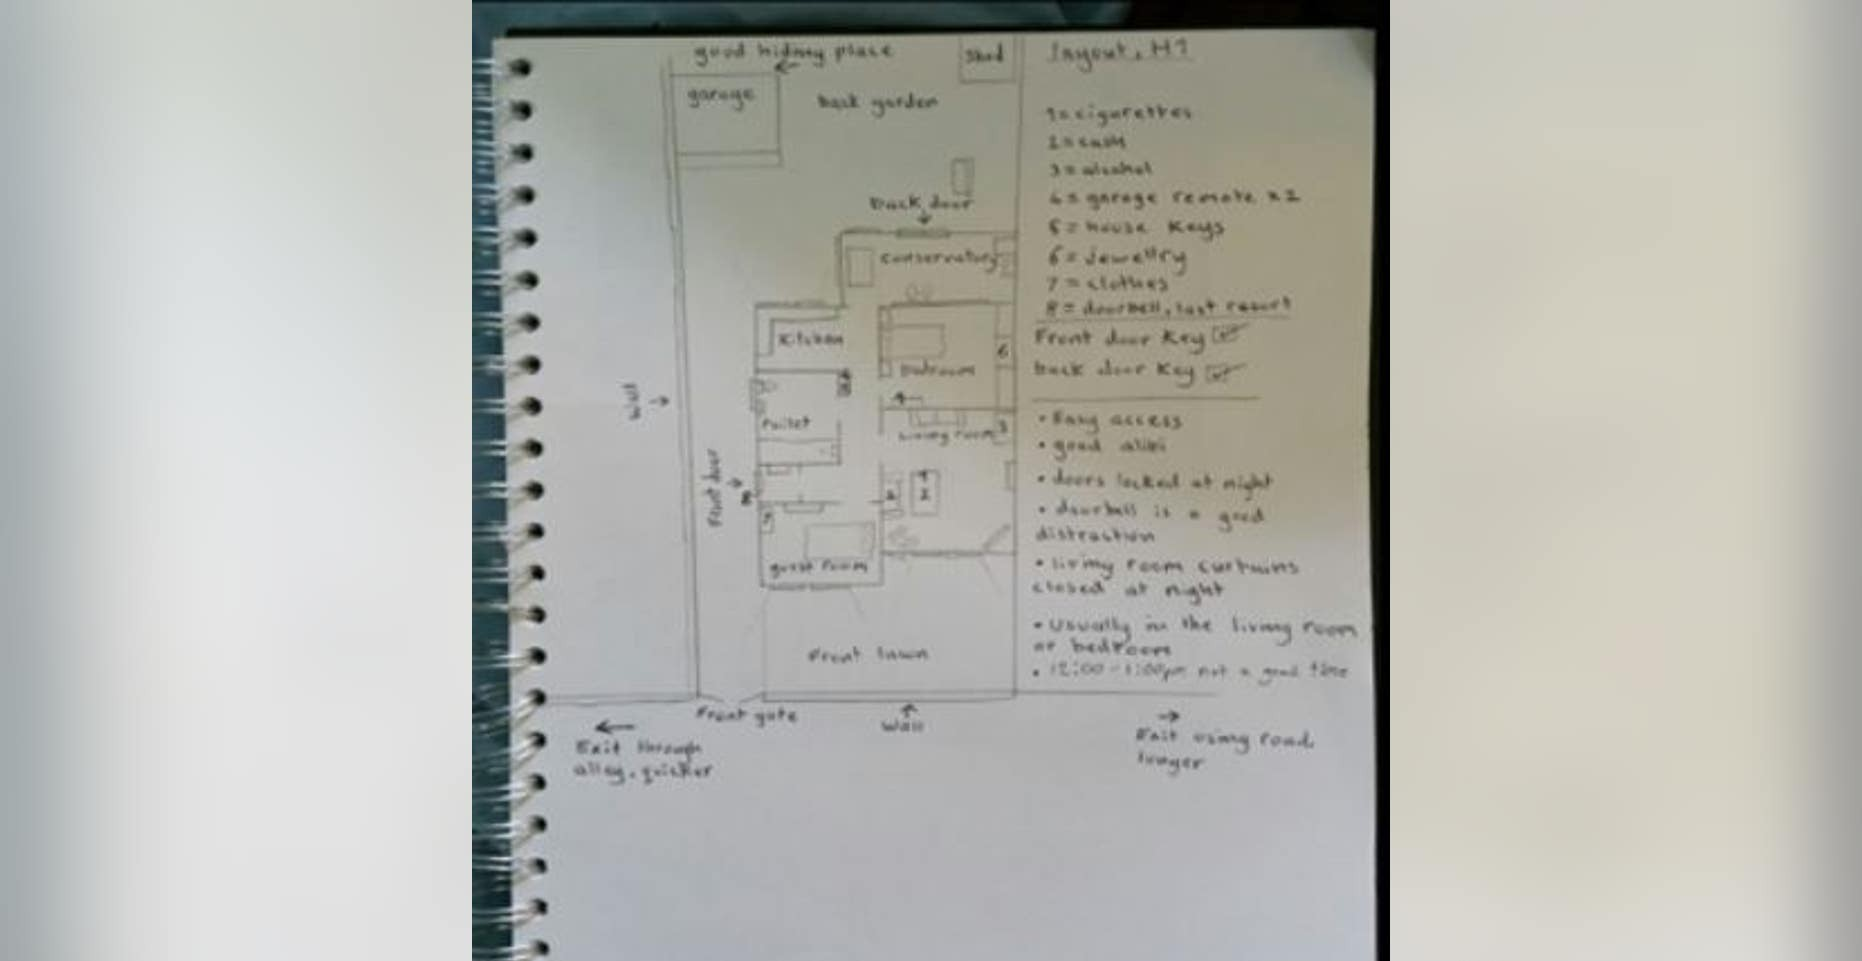 good hiding place
Shed
garage
back garden
back door
conservatory
Kitchen
bedroom
6
4
toilet
living room
3
Wall
Front door
8
2
guest room
Front lawn
Front gate
Wall
Exit through
alley, quicker
Exit using road,
longer
layout, H1
1 = cigarettes
2 = cash
3 = alcohol
4 = garage remote x2
5 = house keys
6 = jewellry
7 = clothes
8 = doorbell, last resort
Front door Key
back door Key
• Easy access
• good alibi
• doors locked at night
• doorbell is a good
distraction
• living room curtains
closed at night
• Usually in the living room
or bedroom
• 12:00 - 1:00pm not a good time